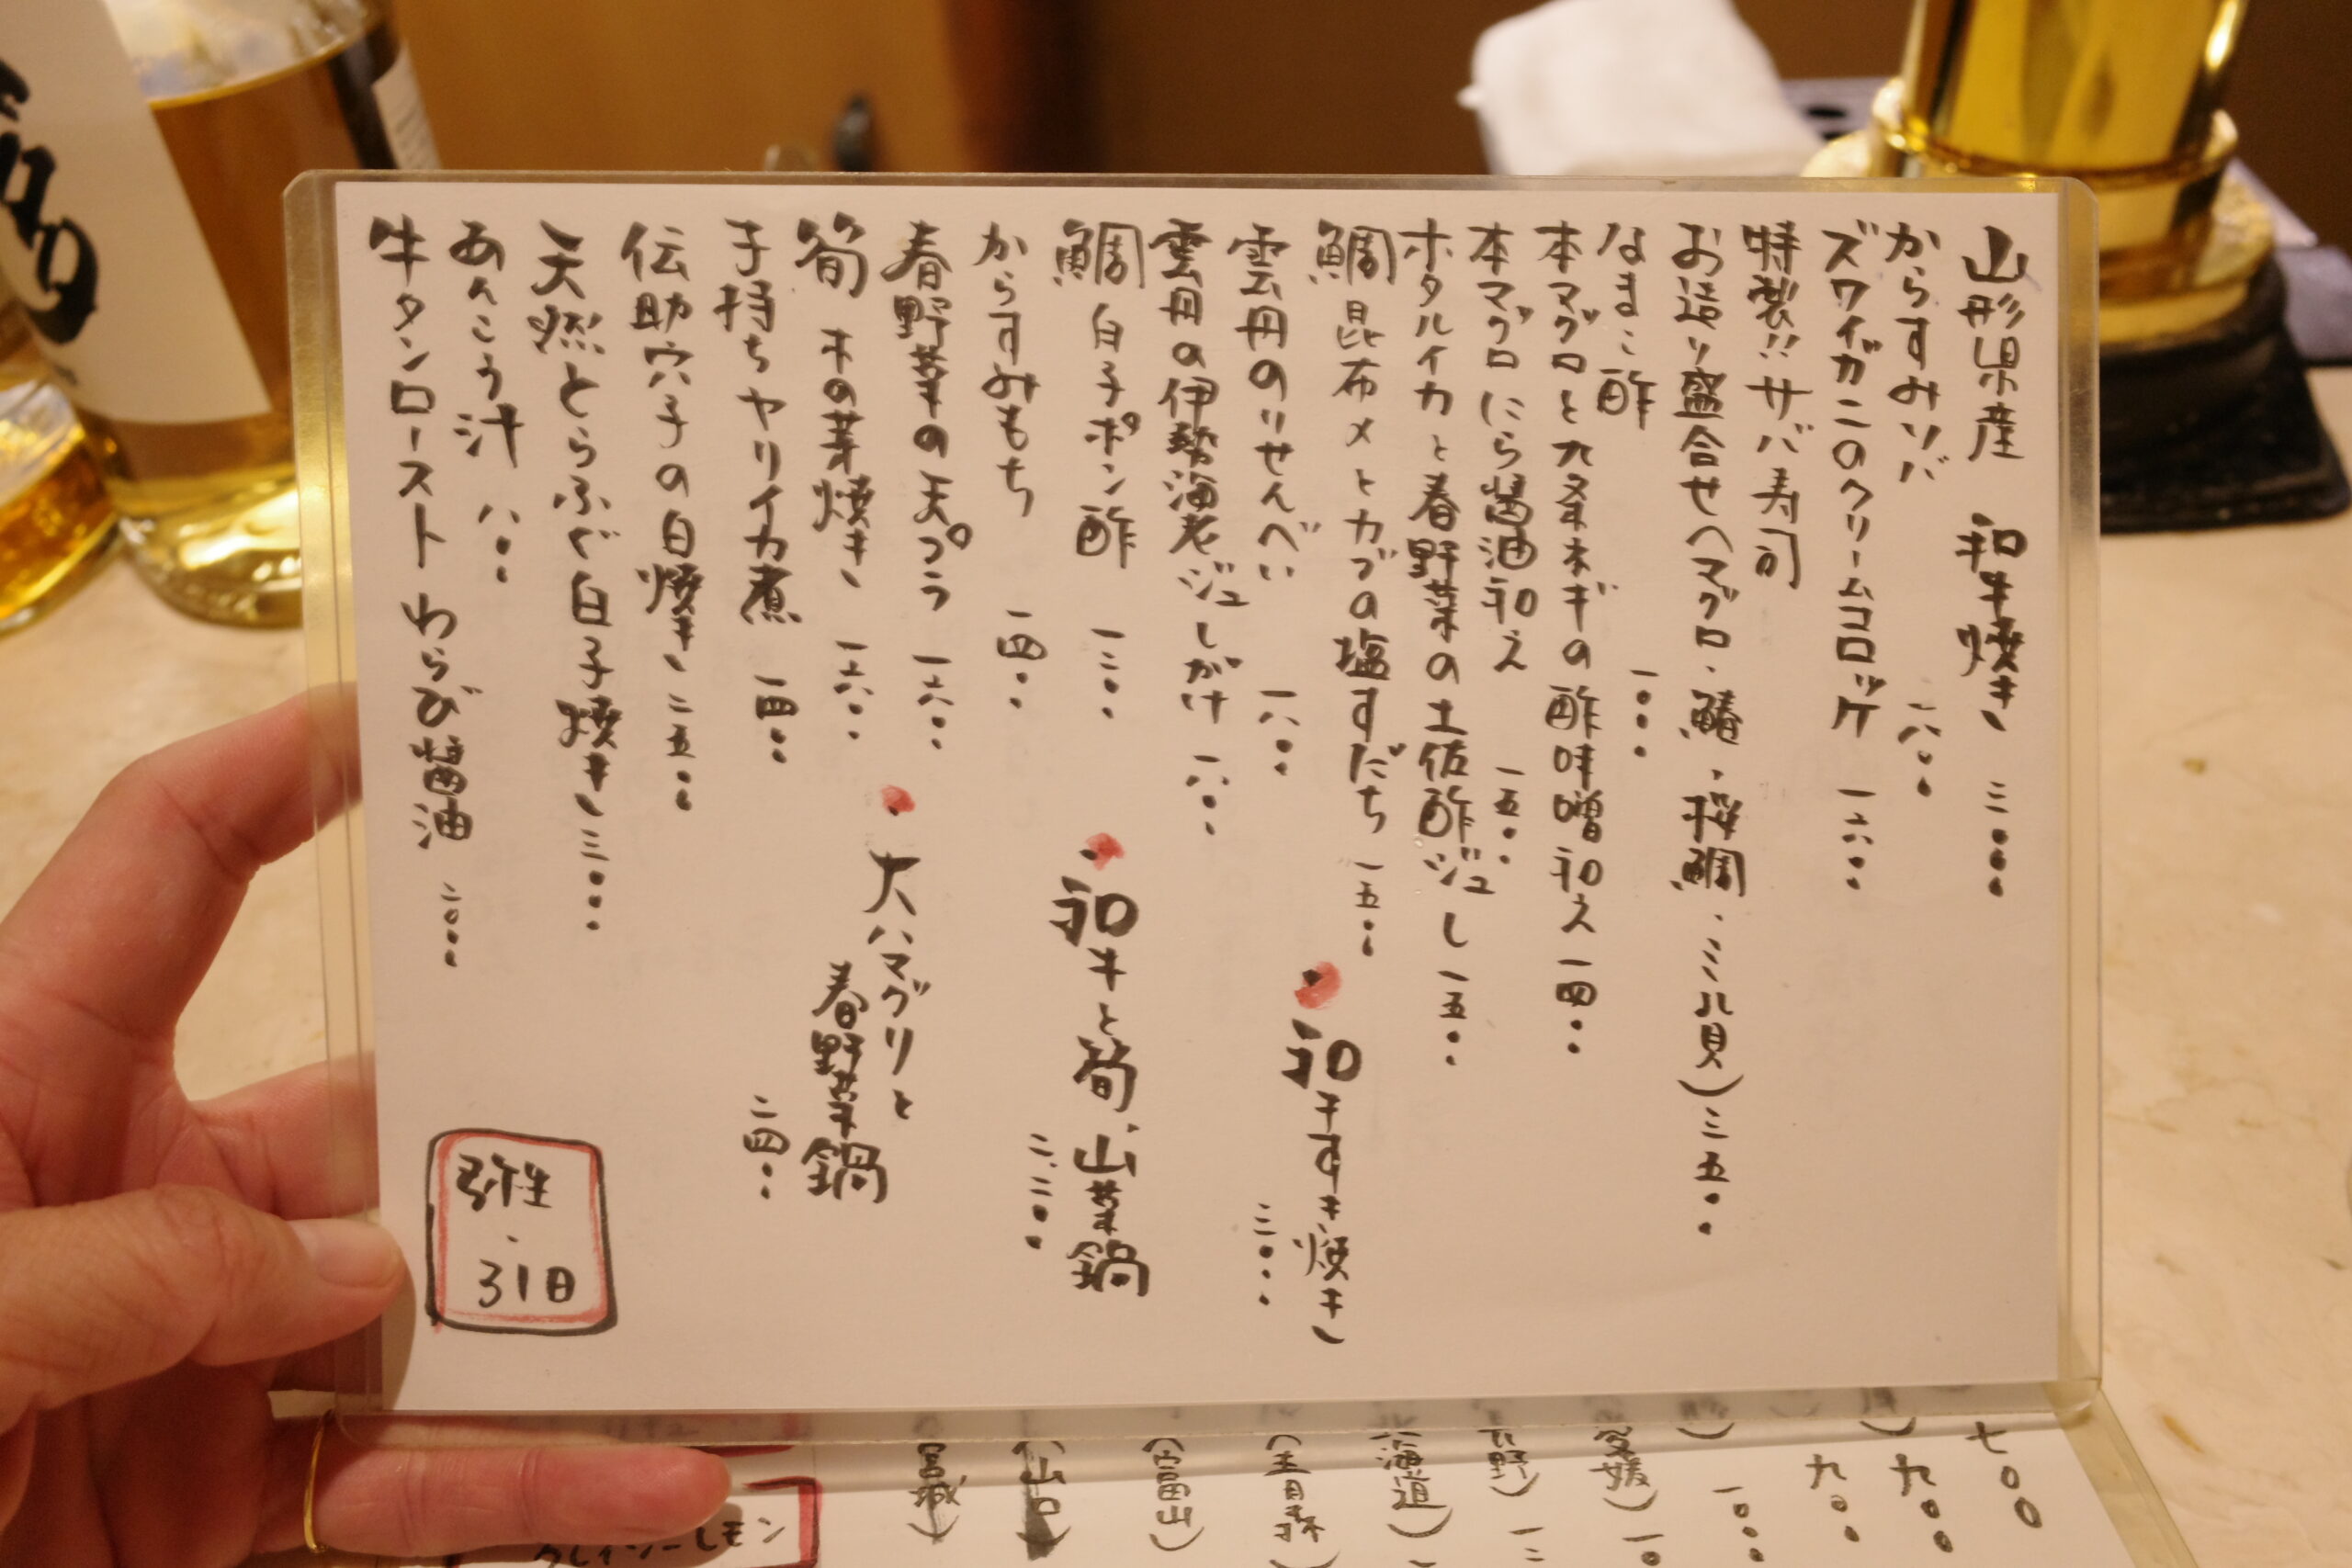 山形県産 和牛焼き 三〇〇〇
からすみソバ 一八〇〇
ズワイガニのクリームコロッケ 一六〇〇
特製!!サバ寿司
お造り盛合せ(マグロ・鰆・桜鯛・ミル貝)三五〇〇
なまこ酢 一〇〇〇
本マグロと九条ネギの酢味噌和え 一四〇〇
本マグロにら醤油和え 一五〇〇
ホタルイカと春野菜の土佐酢ジュレ 一五〇〇
鯛昆布〆とカブの塩すだち 一五〇〇
雲丹のりせんべい 一八〇〇
雲丹の伊勢海老ジュレがけ 一八〇〇
鯛白子ポン酢 一三〇〇
からすみもち 一四〇〇
春野菜の天プラ 一六〇〇
筍 木の芽焼き 一六〇〇
子持ちヤリイカ煮 一四〇〇
伝助穴子の白焼き 二五〇〇
天然とらふぐ白子焼き 三〇〇〇
あんこう汁 八〇〇
牛タンロースト わらび醤油 二〇〇〇
・和牛すき焼き
三〇〇〇
・和牛と筍、山菜鍋
二、二〇〇
・大ハマグリと
春野菜鍋
二四〇〇
弥生
・
31日
七〇〇
九〇〇
九〇〇
一〇〇〇
愛媛)
長野)
北海道)
(青森)
(富山)
(山口)
宮城)
レモン